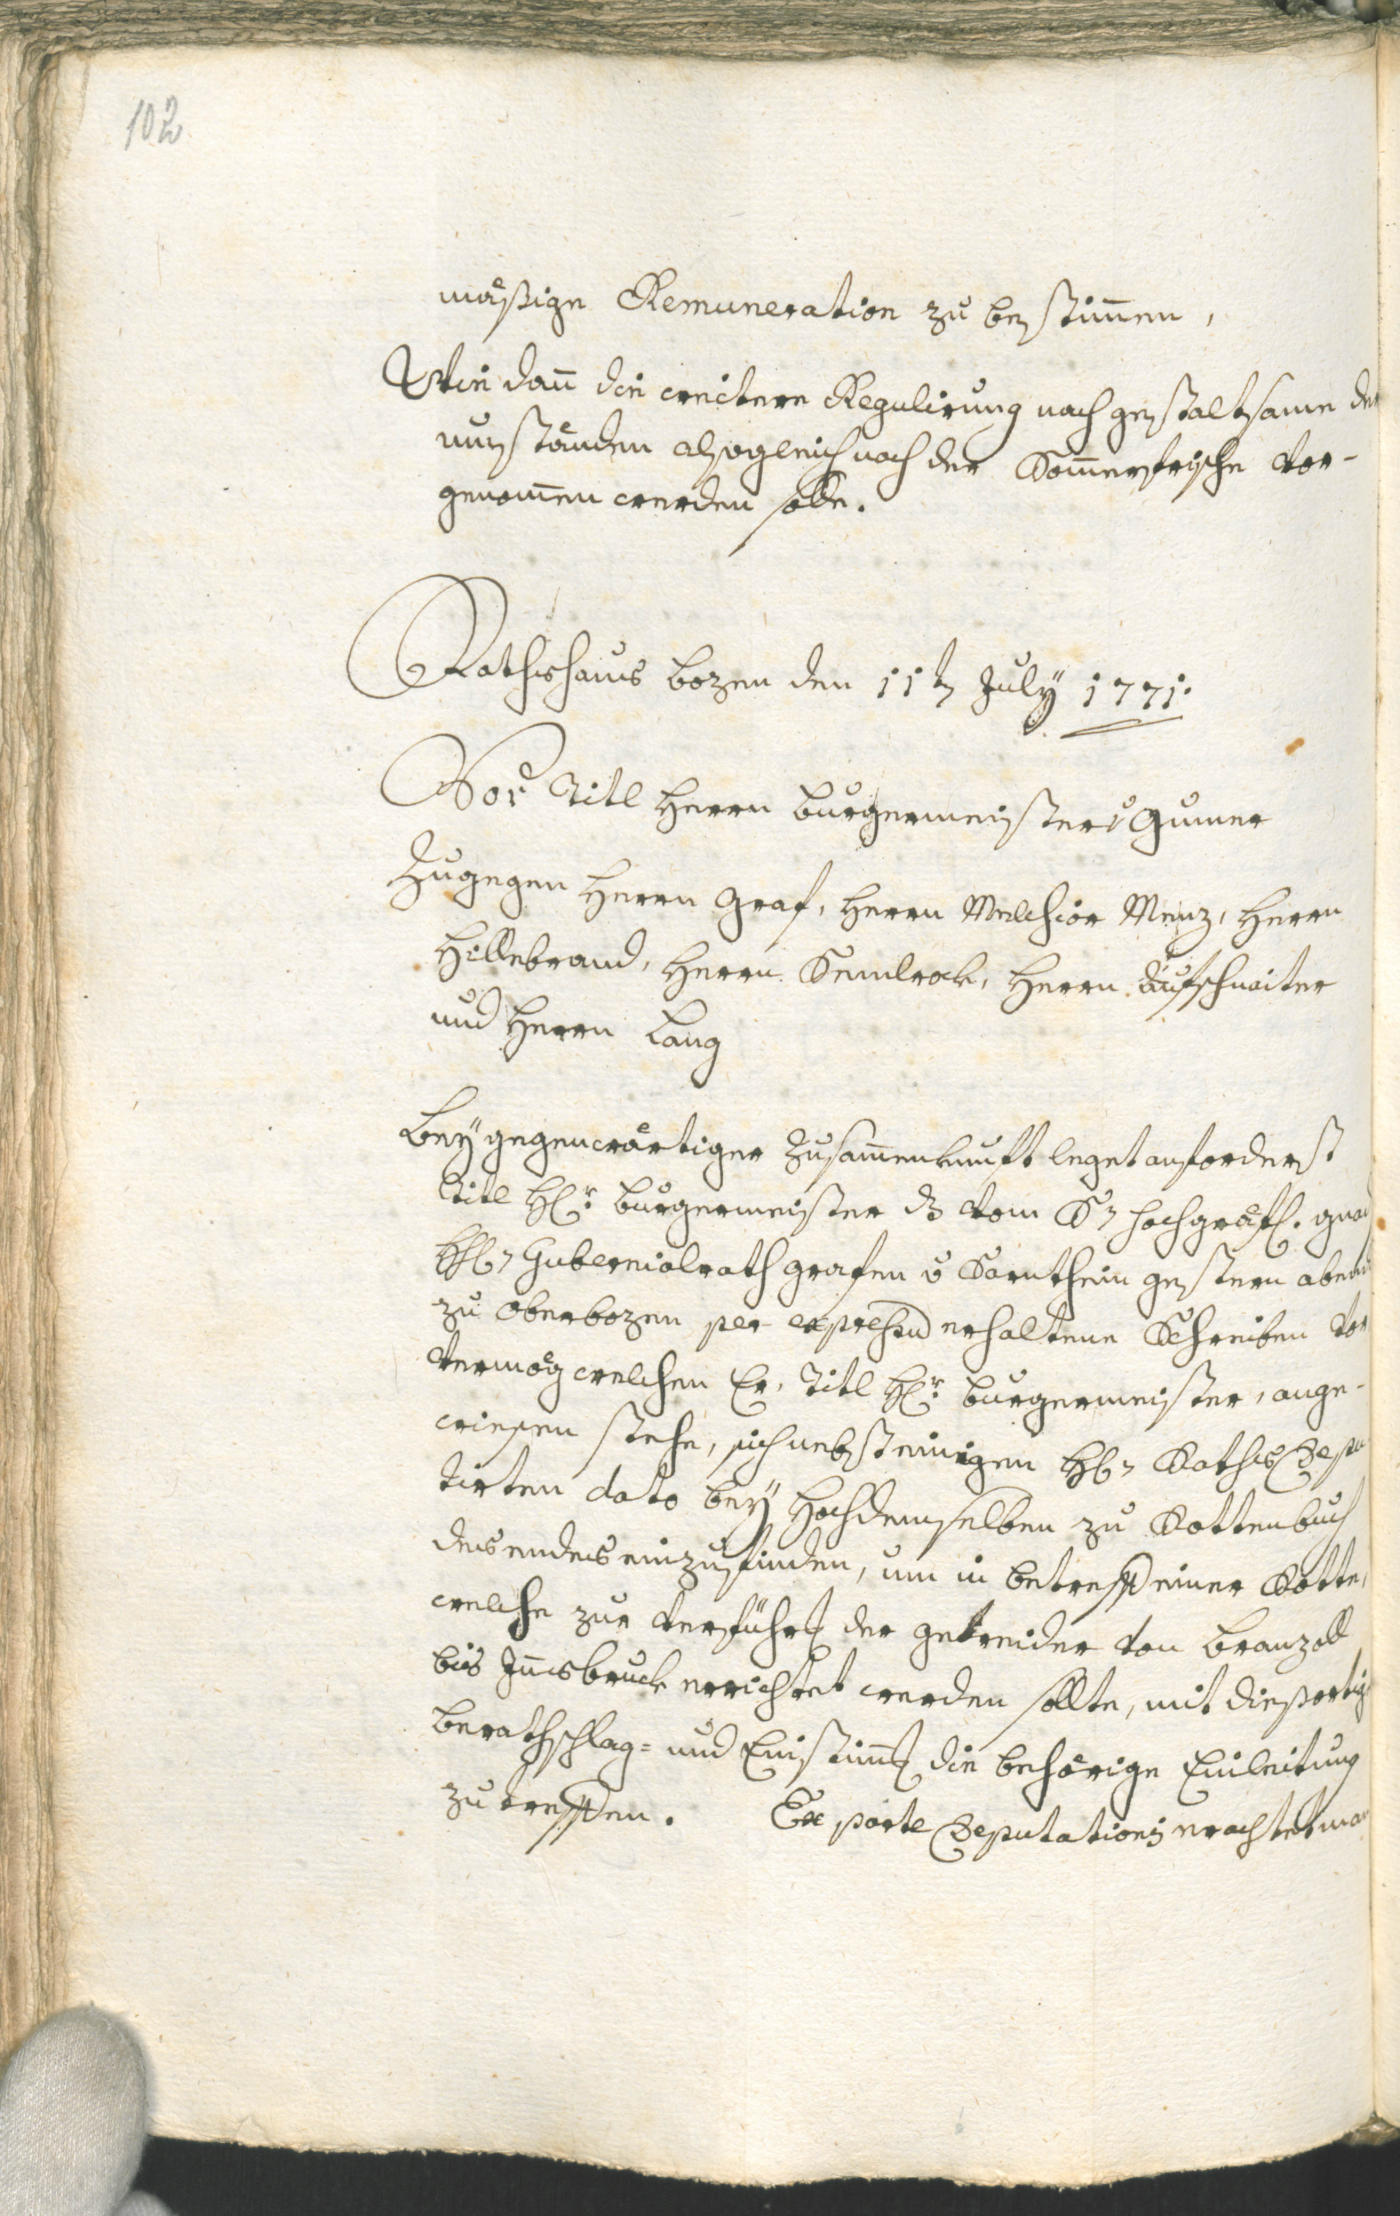 102
mäßige Remuneration zu bestimen,
Wie dañ die weitere Regulirung nach gestaltsame der
umständen alsogleich nach der Somerfrische vor-
genomen werden solle.
Rathshaus bozen den 11t July 1771.
Vor Titl Herrn burgermeister Gumer
Zugegen Herrn Graf, Herrn Melchior Menz, Herrn
Hillebrand, Herrn Kemlrok, Herrn Aufschnaiter
und Herrn Lang
Bey gegenwärtiger Zusamenkunft leget anforderst
Titl Hr: burgermeister dz vom Sr hochgräfl. gnad
Hl: Gubernialrath grafen v Sarnthein gestern abends
zu oberbozen per expressũ erhaltene Schreiben vor
vermög welchen Er, Titl Hr: burgermeister, ange-
wiesen stehe, sich nebst einigen Hl: Raths Depu
tirten dato bey Hochdemselben zu Rottenbuch
des endes einzufinden, um in betreff einer Rotte,
welche zur verführg der getreider von branzoll
bis Iñsbruck errichtet werden sollte, mit diesortig
berathschlag- und Einstimg die behörige Einleitung
zu treffen. Ex parte Deputationis erachtet man